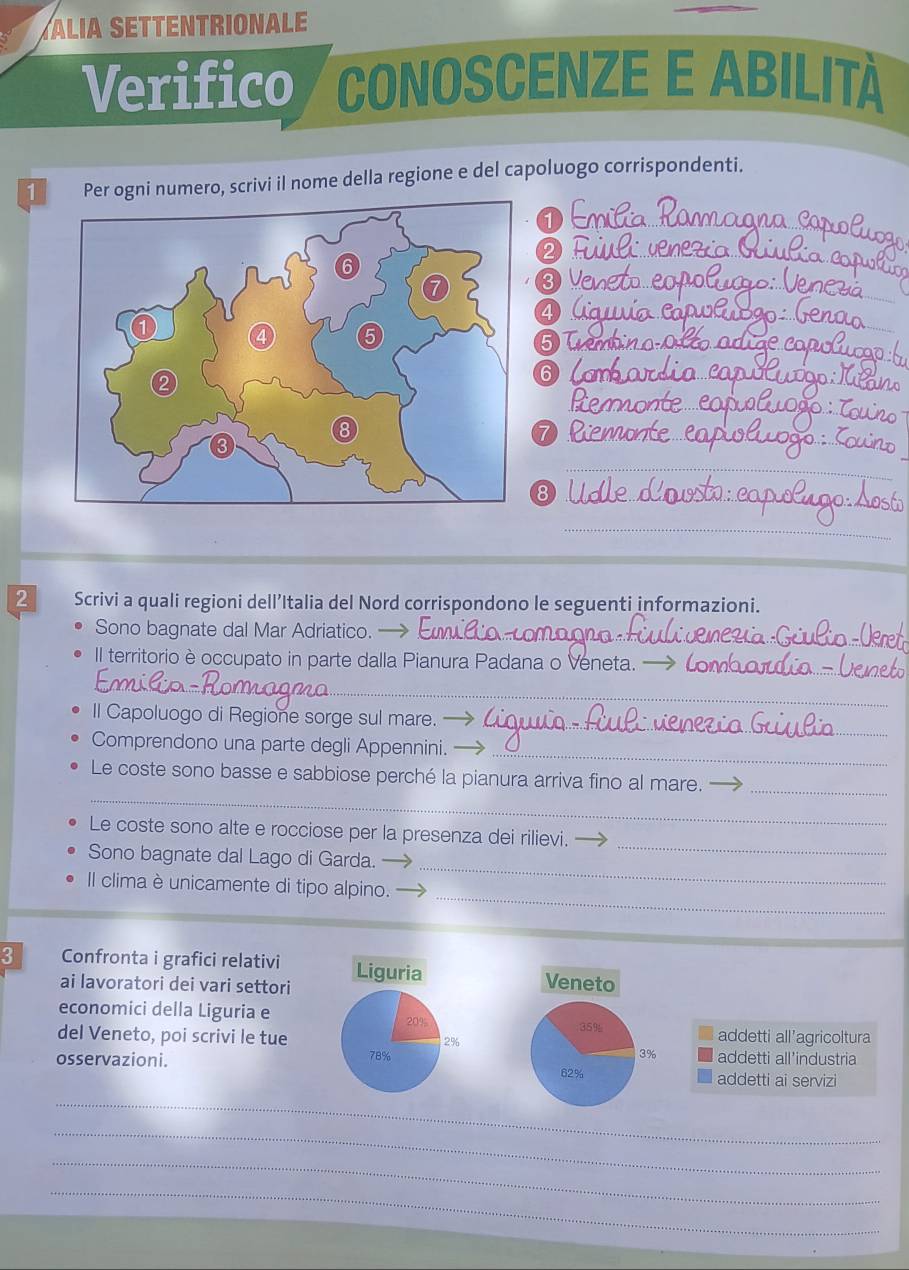 TALIA SETTENTRIONALE
Verifico CONOSCENZE E ABILITÀ
1 Per ogni numero, scrivi il nome della regione e del capoluogo corrispondenti.
1
2
3
4
5
6
7
8
1 Emilia Ramagna capoluogo:
2 Fiuli venezia Giulia capoluog
3 Veneto capoluogo: Venezia
4 Liguria capoluogo: Genoa
5 Trentino-alto adige capoluogo:
6 Lombardia capoluogo: Milano
Piemonte capoluogo: Torino
7 Piemonte capoluogo: Torino
8 Valle d'aosta: capoluogo: Aosta
2 Scrivi a quali regioni dell'Italia del Nord corrispondono le seguenti informazioni.
• Sono bagnate dal Mar Adriatico. → Emilia-romagna-friuli venezia-Giulia-Veneto
• Il territorio è occupato in parte dalla Pianura Padana o Veneta. → Lombardia - Veneto
Emilia-Romagna
• Il Capoluogo di Regione sorge sul mare. → Liguria - friuli venezia Giulia
• Comprendono una parte degli Appennini. →
• Le coste sono basse e sabbiose perché la pianura arriva fino al mare. →
• Le coste sono alte e rocciose per la presenza dei rilievi. →
• Sono bagnate dal Lago di Garda. →
• Il clima è unicamente di tipo alpino. →
3 Confronta i grafici relativi
ai lavoratori dei vari settori
economici della Liguria e
del Veneto, poi scrivi le tue
osservazioni.
Liguria
20%
2%
78%
Veneto
35%
3%
62%
addetti all'agricoltura
addetti all'industria
addetti ai servizi